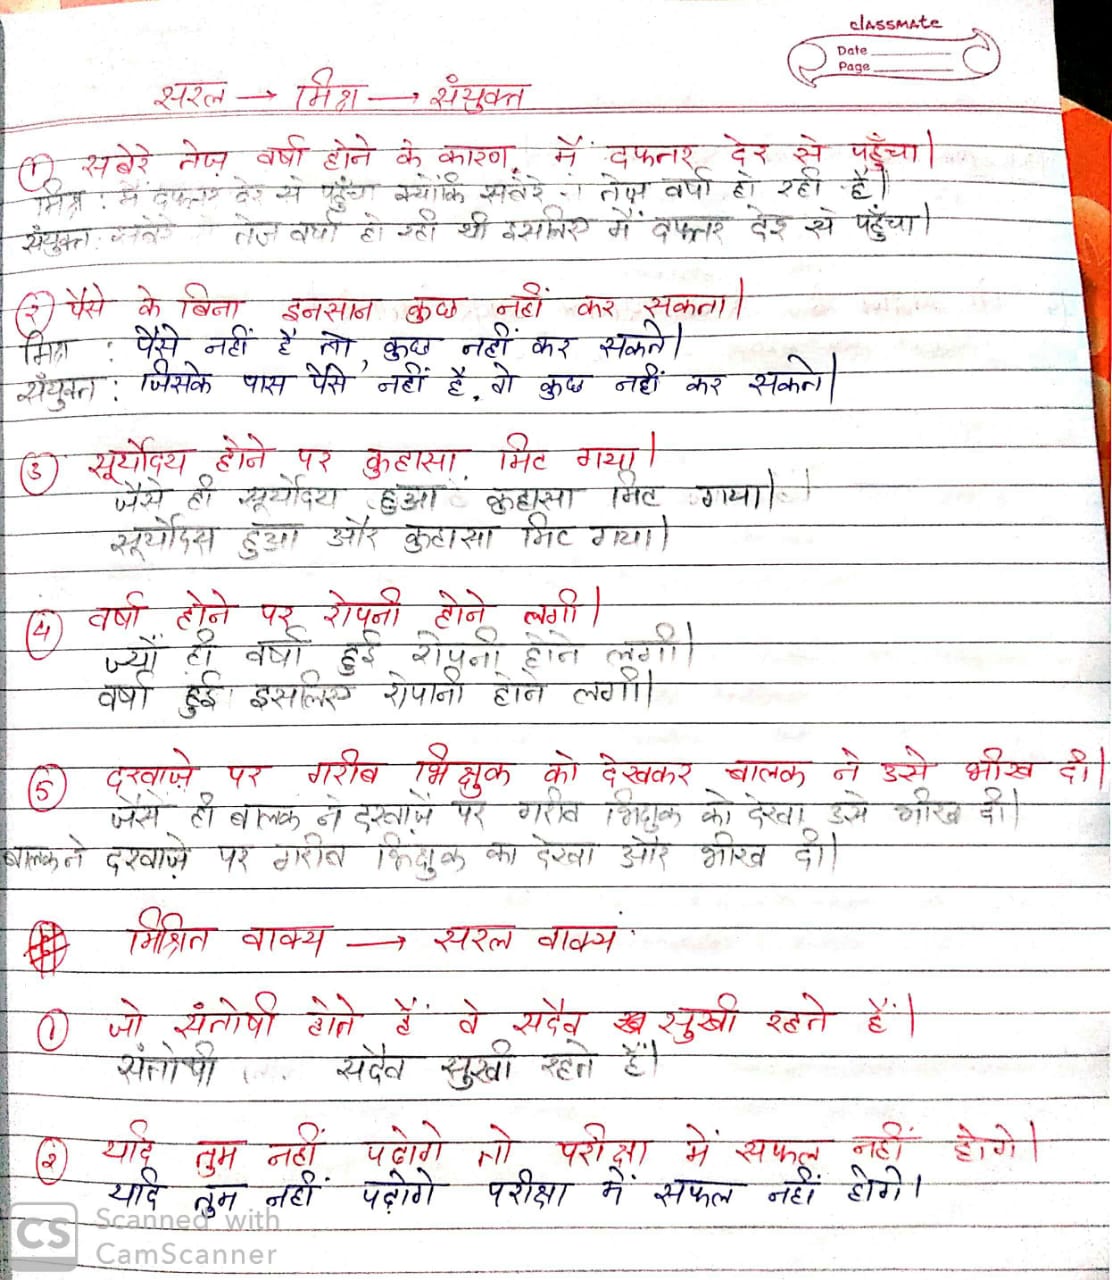 classmate
Date
Page
सरल → मिश्र → संयुक्त
① सबेरे तेज़ वर्षा होने के कारण, मैं दफ्तर देर से पहुँचा।
मिश्र : मैं दफ्तर देर से पहुँचा क्योंकि सबेरे तेज़ वर्षा हो रही है।
संयुक्त : सबेरे तेज वर्षा हो रही थी इसलिए मैं दफ्तर देर से पहुँचा।
② पैसे के बिना इनसान कुछ नहीं कर सकता।
मिश्र : पैसे नहीं है तो, कुछ नहीं कर सकते।
संयुक्त : जिसके पास पैसे नहीं है, वो कुछ नहीं कर सकते।
③ सूर्योदय होने पर कुहासा मिट गया।
जैसे ही सूर्योदय हुआ कुहासा मिट गया।
सूर्योदय हुआ और कुहासा मिट गया।
④ वर्षा होने पर रोपनी होने लगी।
ज्यों ही वर्षा हुई रोपनी होने लगी।
वर्षा हुई इसलिए रोपानी होने लगी।
⑤ दरवाज़े पर गरीब भिक्षुक को देखकर बालक ने उसे भीख दी।
जैसे ही बालक ने दरवाज़े पर गरीब भिक्षुक को देखा उसे भीख दी।
बालक ने दरवाज़े पर गरीब भिक्षुक को देखा और भीख दी।
मिश्रित वाक्य → सरल वाक्य
① जो संतोषी होते हैं वे सदैव सुखी रहते हैं।
संतोषी सदैव सुखी रहते हैं।
② यदि तुम नहीं पढोगे तो परीक्षा में सफल नहीं होगे।
यदि तुम नहीं पढ़ोगे परीक्षा में सफल नहीं होगे।
CS Scanned with
CamScanner